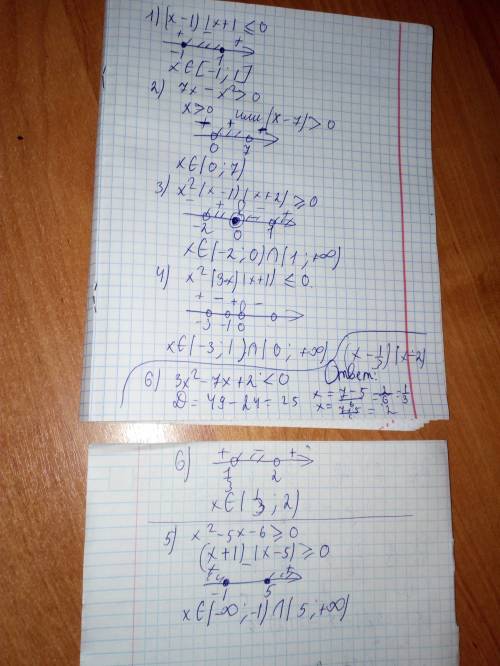 1) (x-1)(x+1 ≤ 0
+ − +
-1 1
x∈[-1; 1]
2) 7x - x² > 0
x > 0 или (x-7) > 0
− + −
0 7
x∈(0; 7)
3) x²(x-1)(x+2) ≥ 0
-2 0 1
x∈(-2; 0)∩(1; +∞)
4) x²(3x)(x+1) ≤ 0.
+ − + −
-3 -1 0
x∈(-3; 1)∩(0; +∞)
(x - 1/3)(x-2)
6) 3x² - 7x + 2 < 0
Ответ:
D = 49 - 24 = 25
x = 7-5/6 = 2/6 = 1/3
x = 7+5/6 = 2
6) + − +
1/3 2
x∈(1/3; 2)
5) x² - 5x - 6 ≥ 0
(x+1)(x-5) ≥ 0
+ − +
-1 5
x∈(-∞; -1)∩(5; +∞)